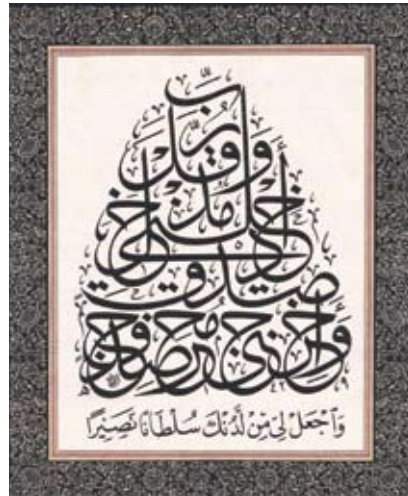 وَقُل رَّبِّ أَدْخِلْنِي مُدْخَلَ صِدْقٍ وَأَخْرِجْنِي مُخْرَجَ صِدْقٍ
وَاجْعَلْ لِي مِنْ لَدُنْكَ سُلْطَانًا نَصِيرًا